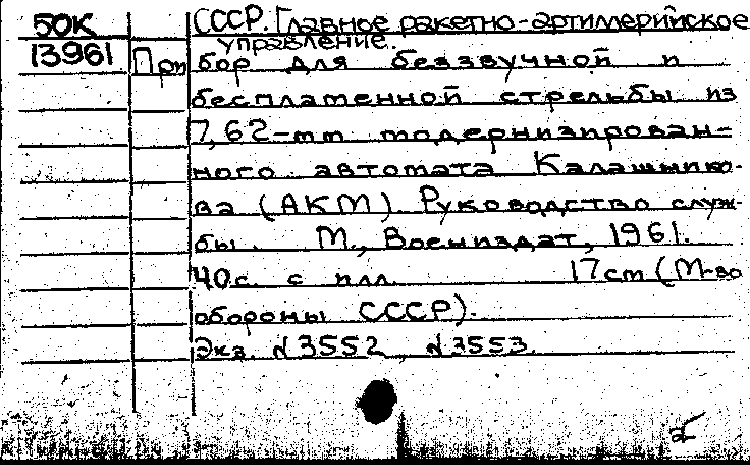 50К СССР. Главное ракетно-артиллерийское
управление.
13961 При бор для беззвучной и
беспламенной стрельбы из
7,62-мм модернизирован-
ного автомата Калашнико-
ва (АКМ). Руководство служ-
бы. М., Воениздат, 1961.
40с. с илл. 17см (М-во
обороны СССР).
Экз. №3552, №3553.